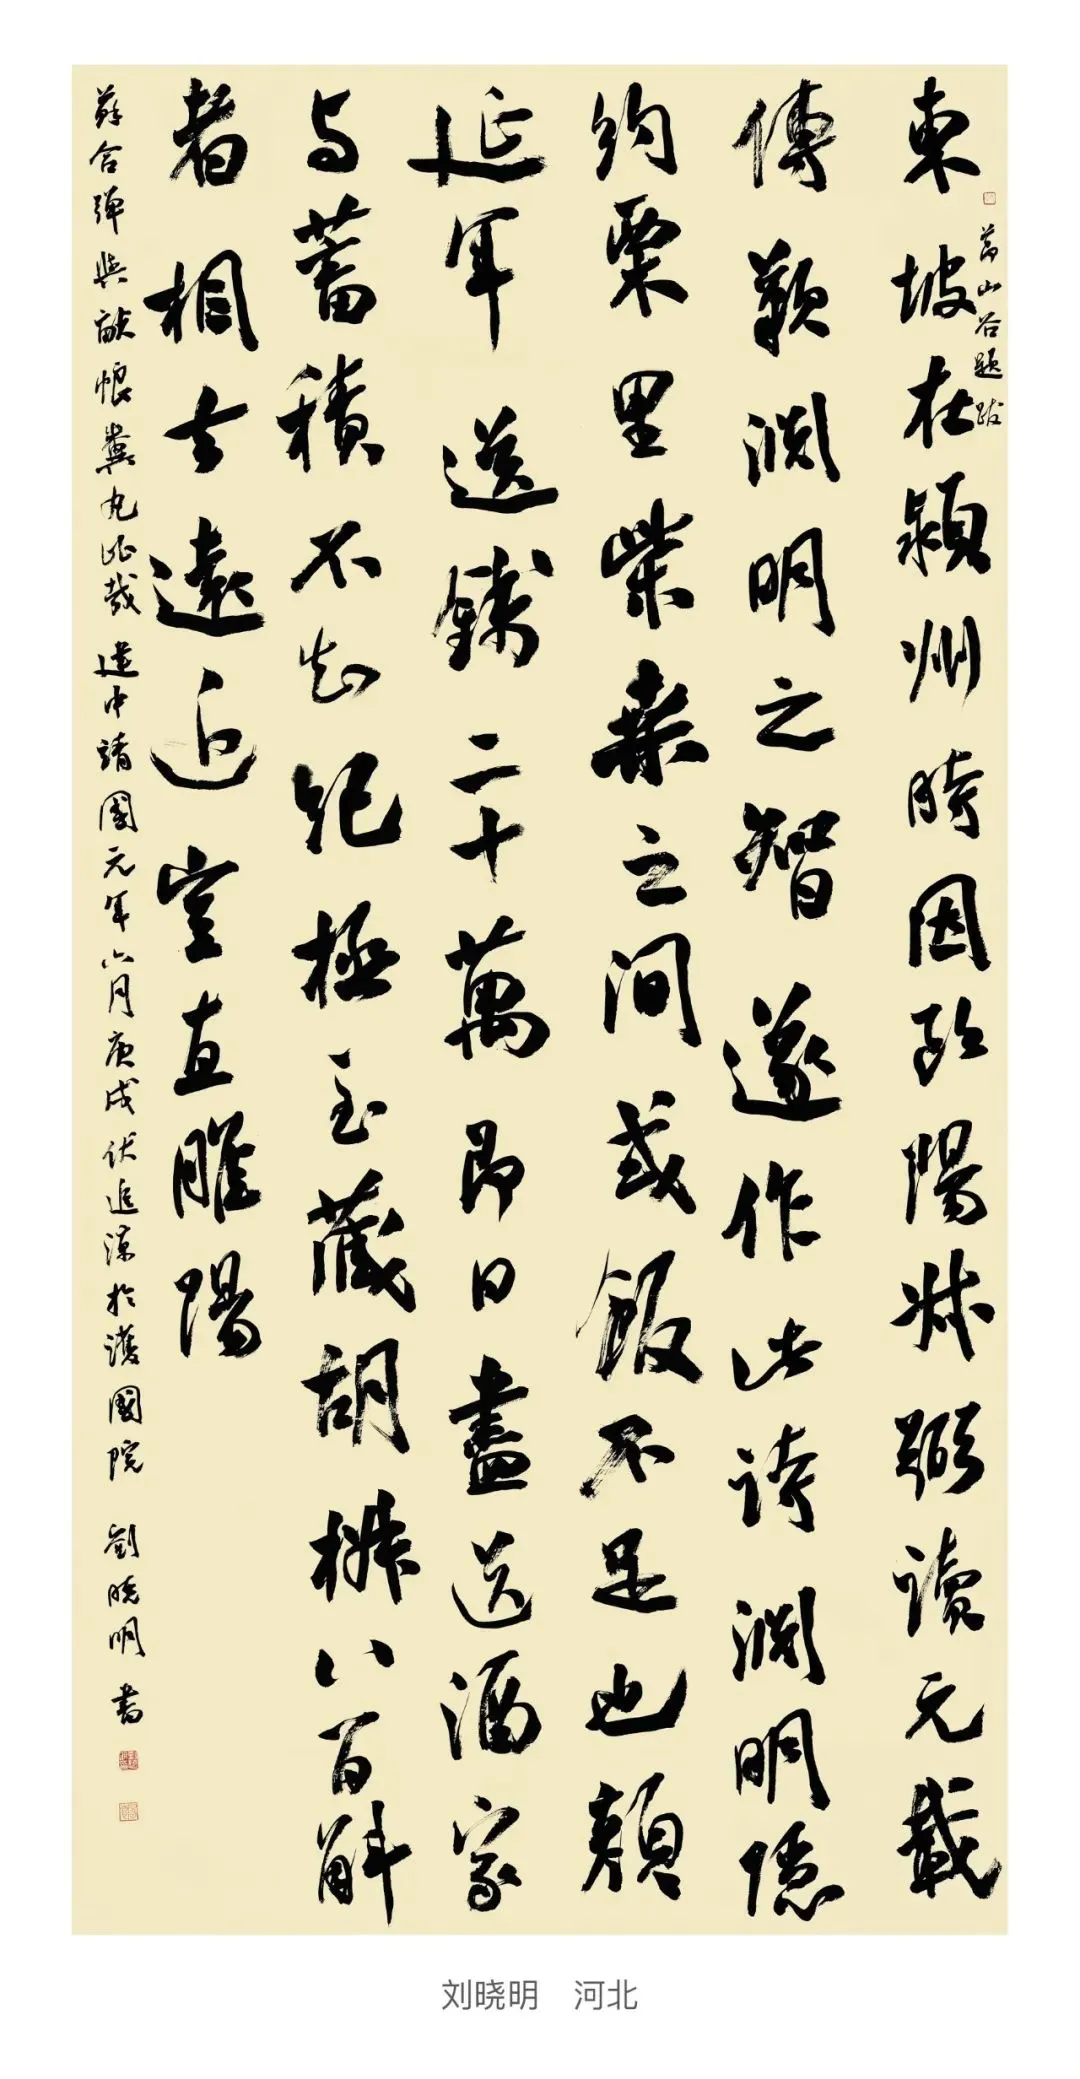 東坡在潁州時因歐陽叔弼讀元載
傳歎淵明之智遂作此詩淵明隱
約栗里柴桑之間或飯不足也顏
延年送錢二十萬即日盡送酒家
与蓄積不知紀極至藏胡椒八百斛
者相去遠近豈直睢陽
蘇合彈與蜣蜋糞丸比哉 建中靖國元年六月庚戌伏追涼於護國院 劉曉明書
黃山谷題跋
刘晓明 河北